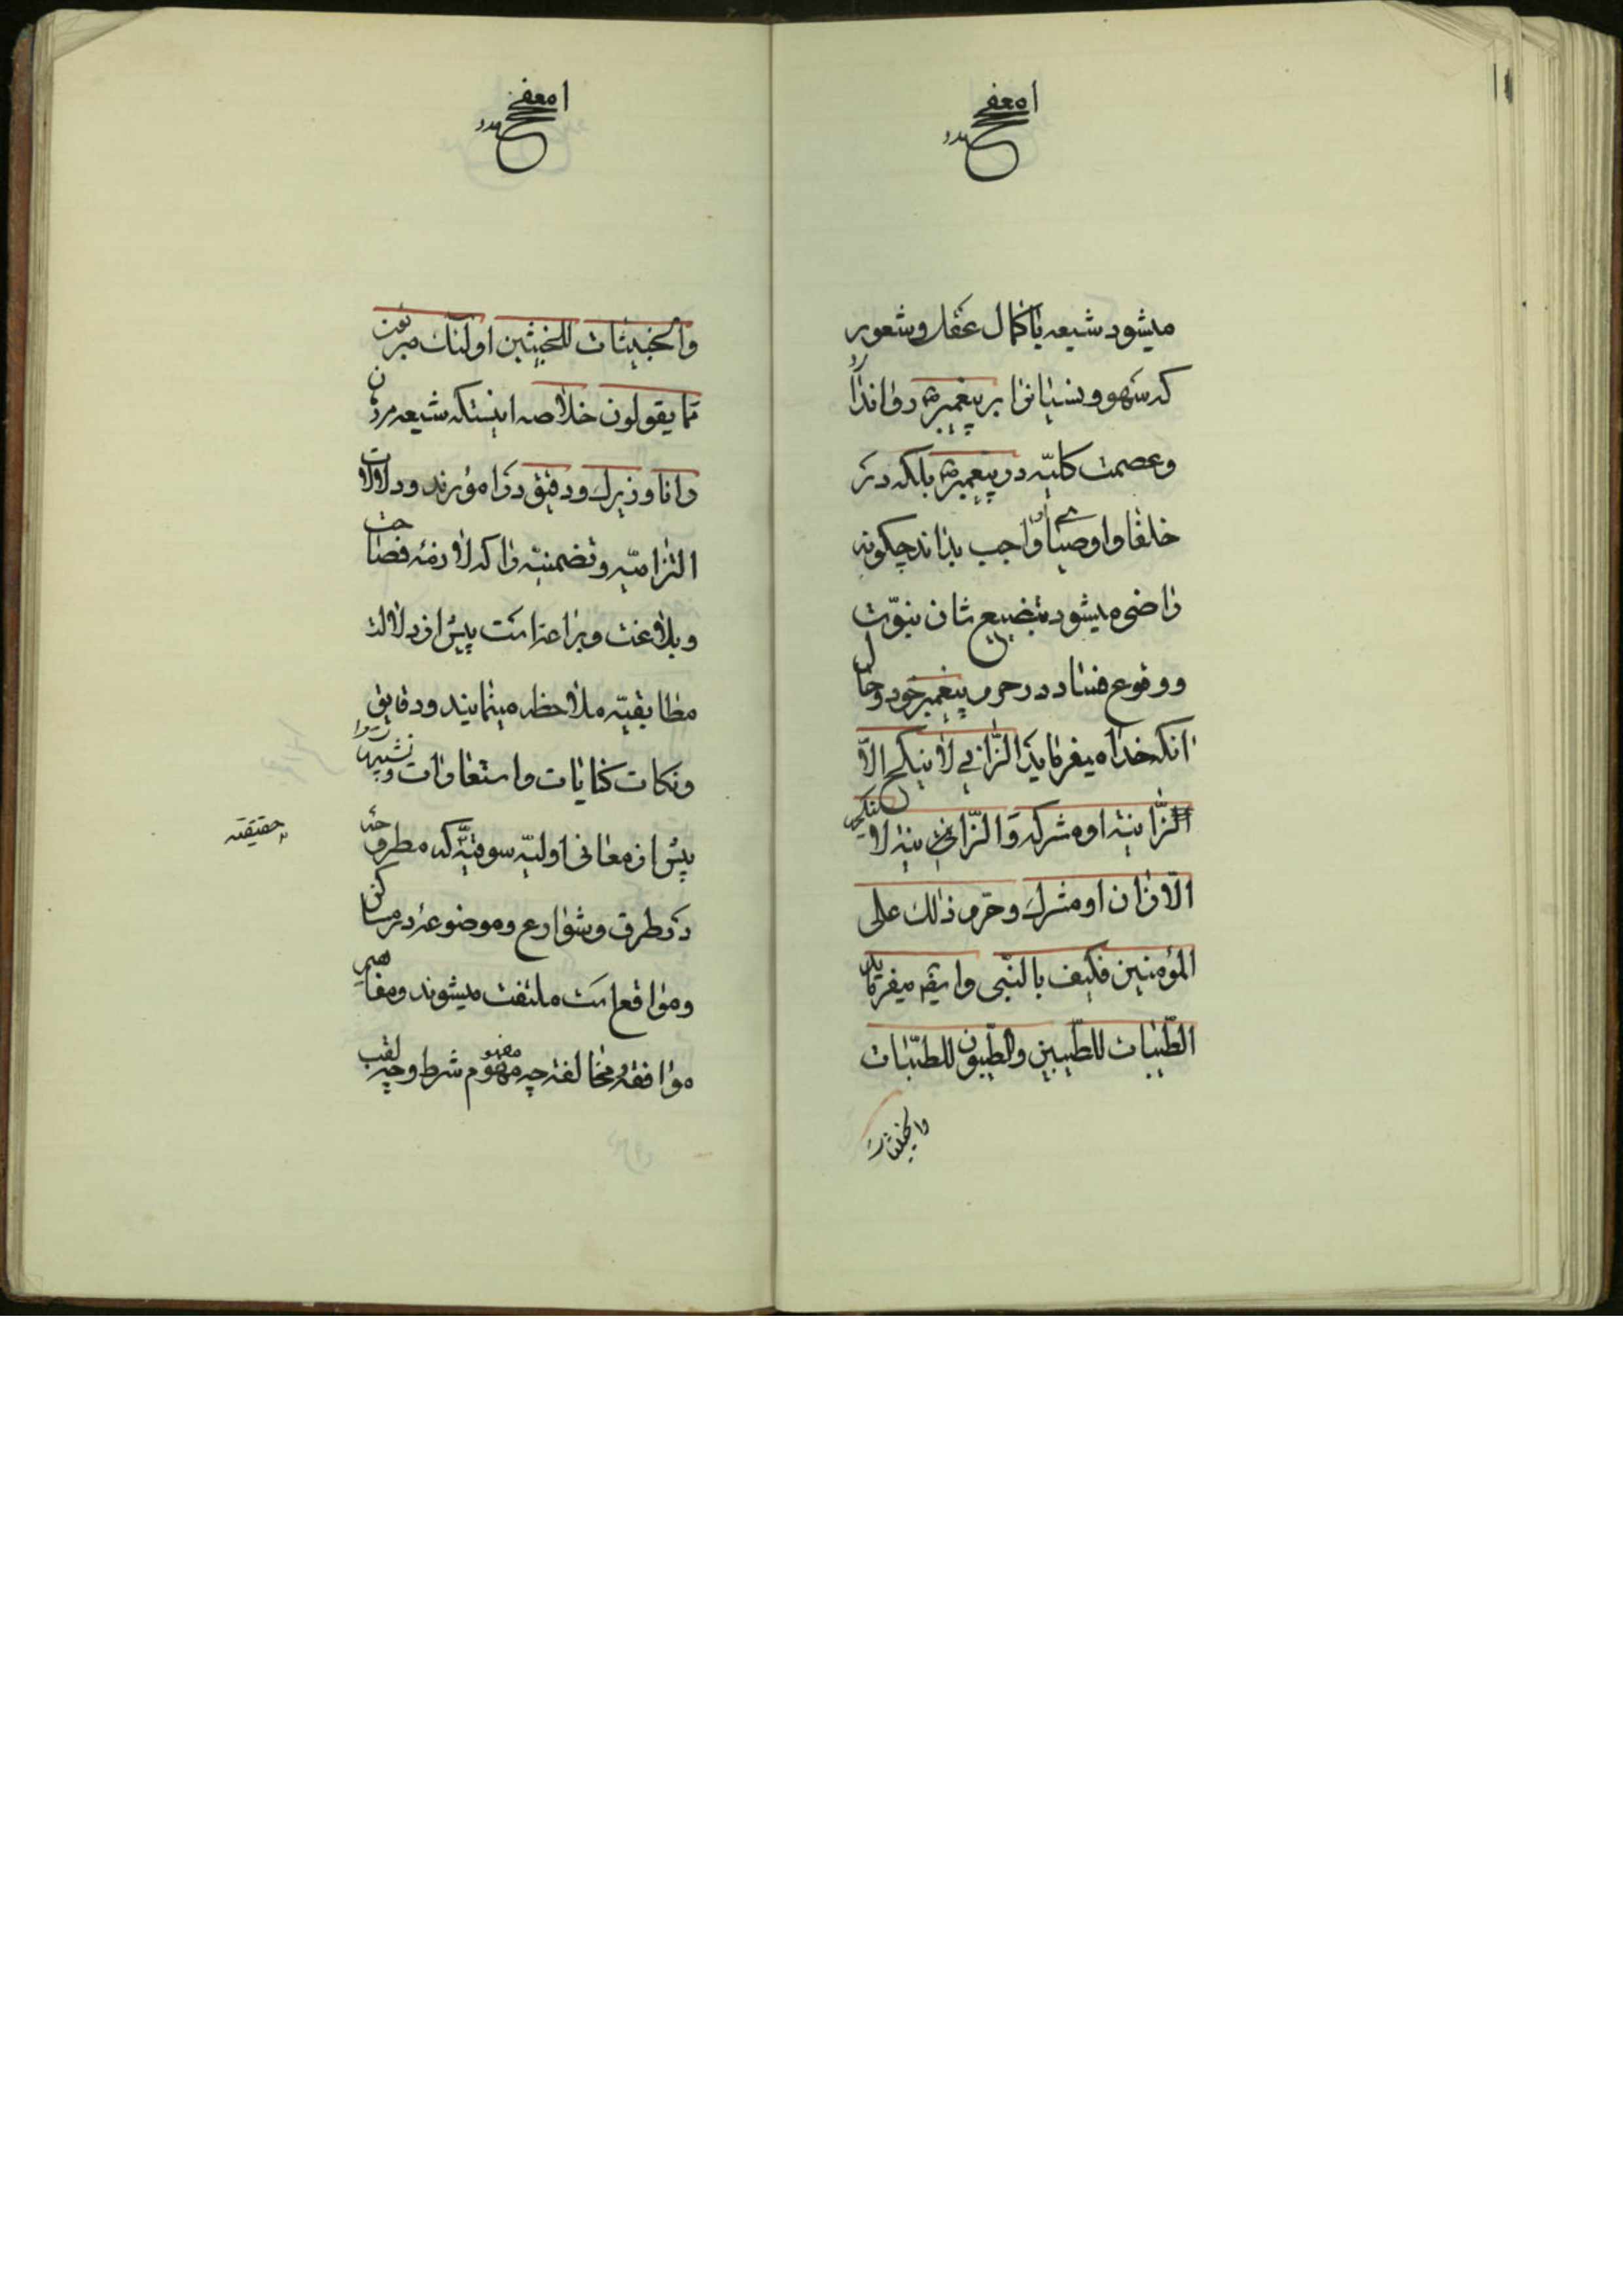 میشود شیعه باکمال عقل و شعور
که سهو و نسیانرا بر پیغمبر ص روا ندارد
و عصمت کلیّه در پیغمبر ص بلکه در
خلفا و اوصیای او واجب بداند چگونه
راضی میشود بتضییع شان نبوّت
و وقوع فساد در حرم پیغمبر خود و حال
انکه خدا میفرماید الزّانی لا ینکح الاّ
الزّانیة او مشرکة و الزّانیة لا ینکحها
الاّ زان او مشرك و حرّم ذلك علی
المؤمنین فکیف بالنّبی و ایضا میفرماید
الطّیّبات للطّیبین والطّیبون للطیّبات
والخبیثات
والخبیثات للخبیثین اولئك مبرئون
مما یقولون خلاصه اینستکه شیعه مردن
دانا و زیرك و دقیق در امورند و دلالات
التزامیّه و تضمنیّه را که لازمهٔ فصاحت
و بلاغت و براعة است پیش از دلالت
مطابقیّه ملاحظه مینمایند و دقایق
و نکات کنایات و استعارات و تشبیهات را
پیش از معانی اولیّه سوقیّه که مطروحهٔ
در طرق و شوارع و موضوعهٔ در مساکن
و مواقع است ملتفت میشوند و مفاهیم
موافقه و مخالفه چه مفهوم شرط و چه لقب
حقیقته